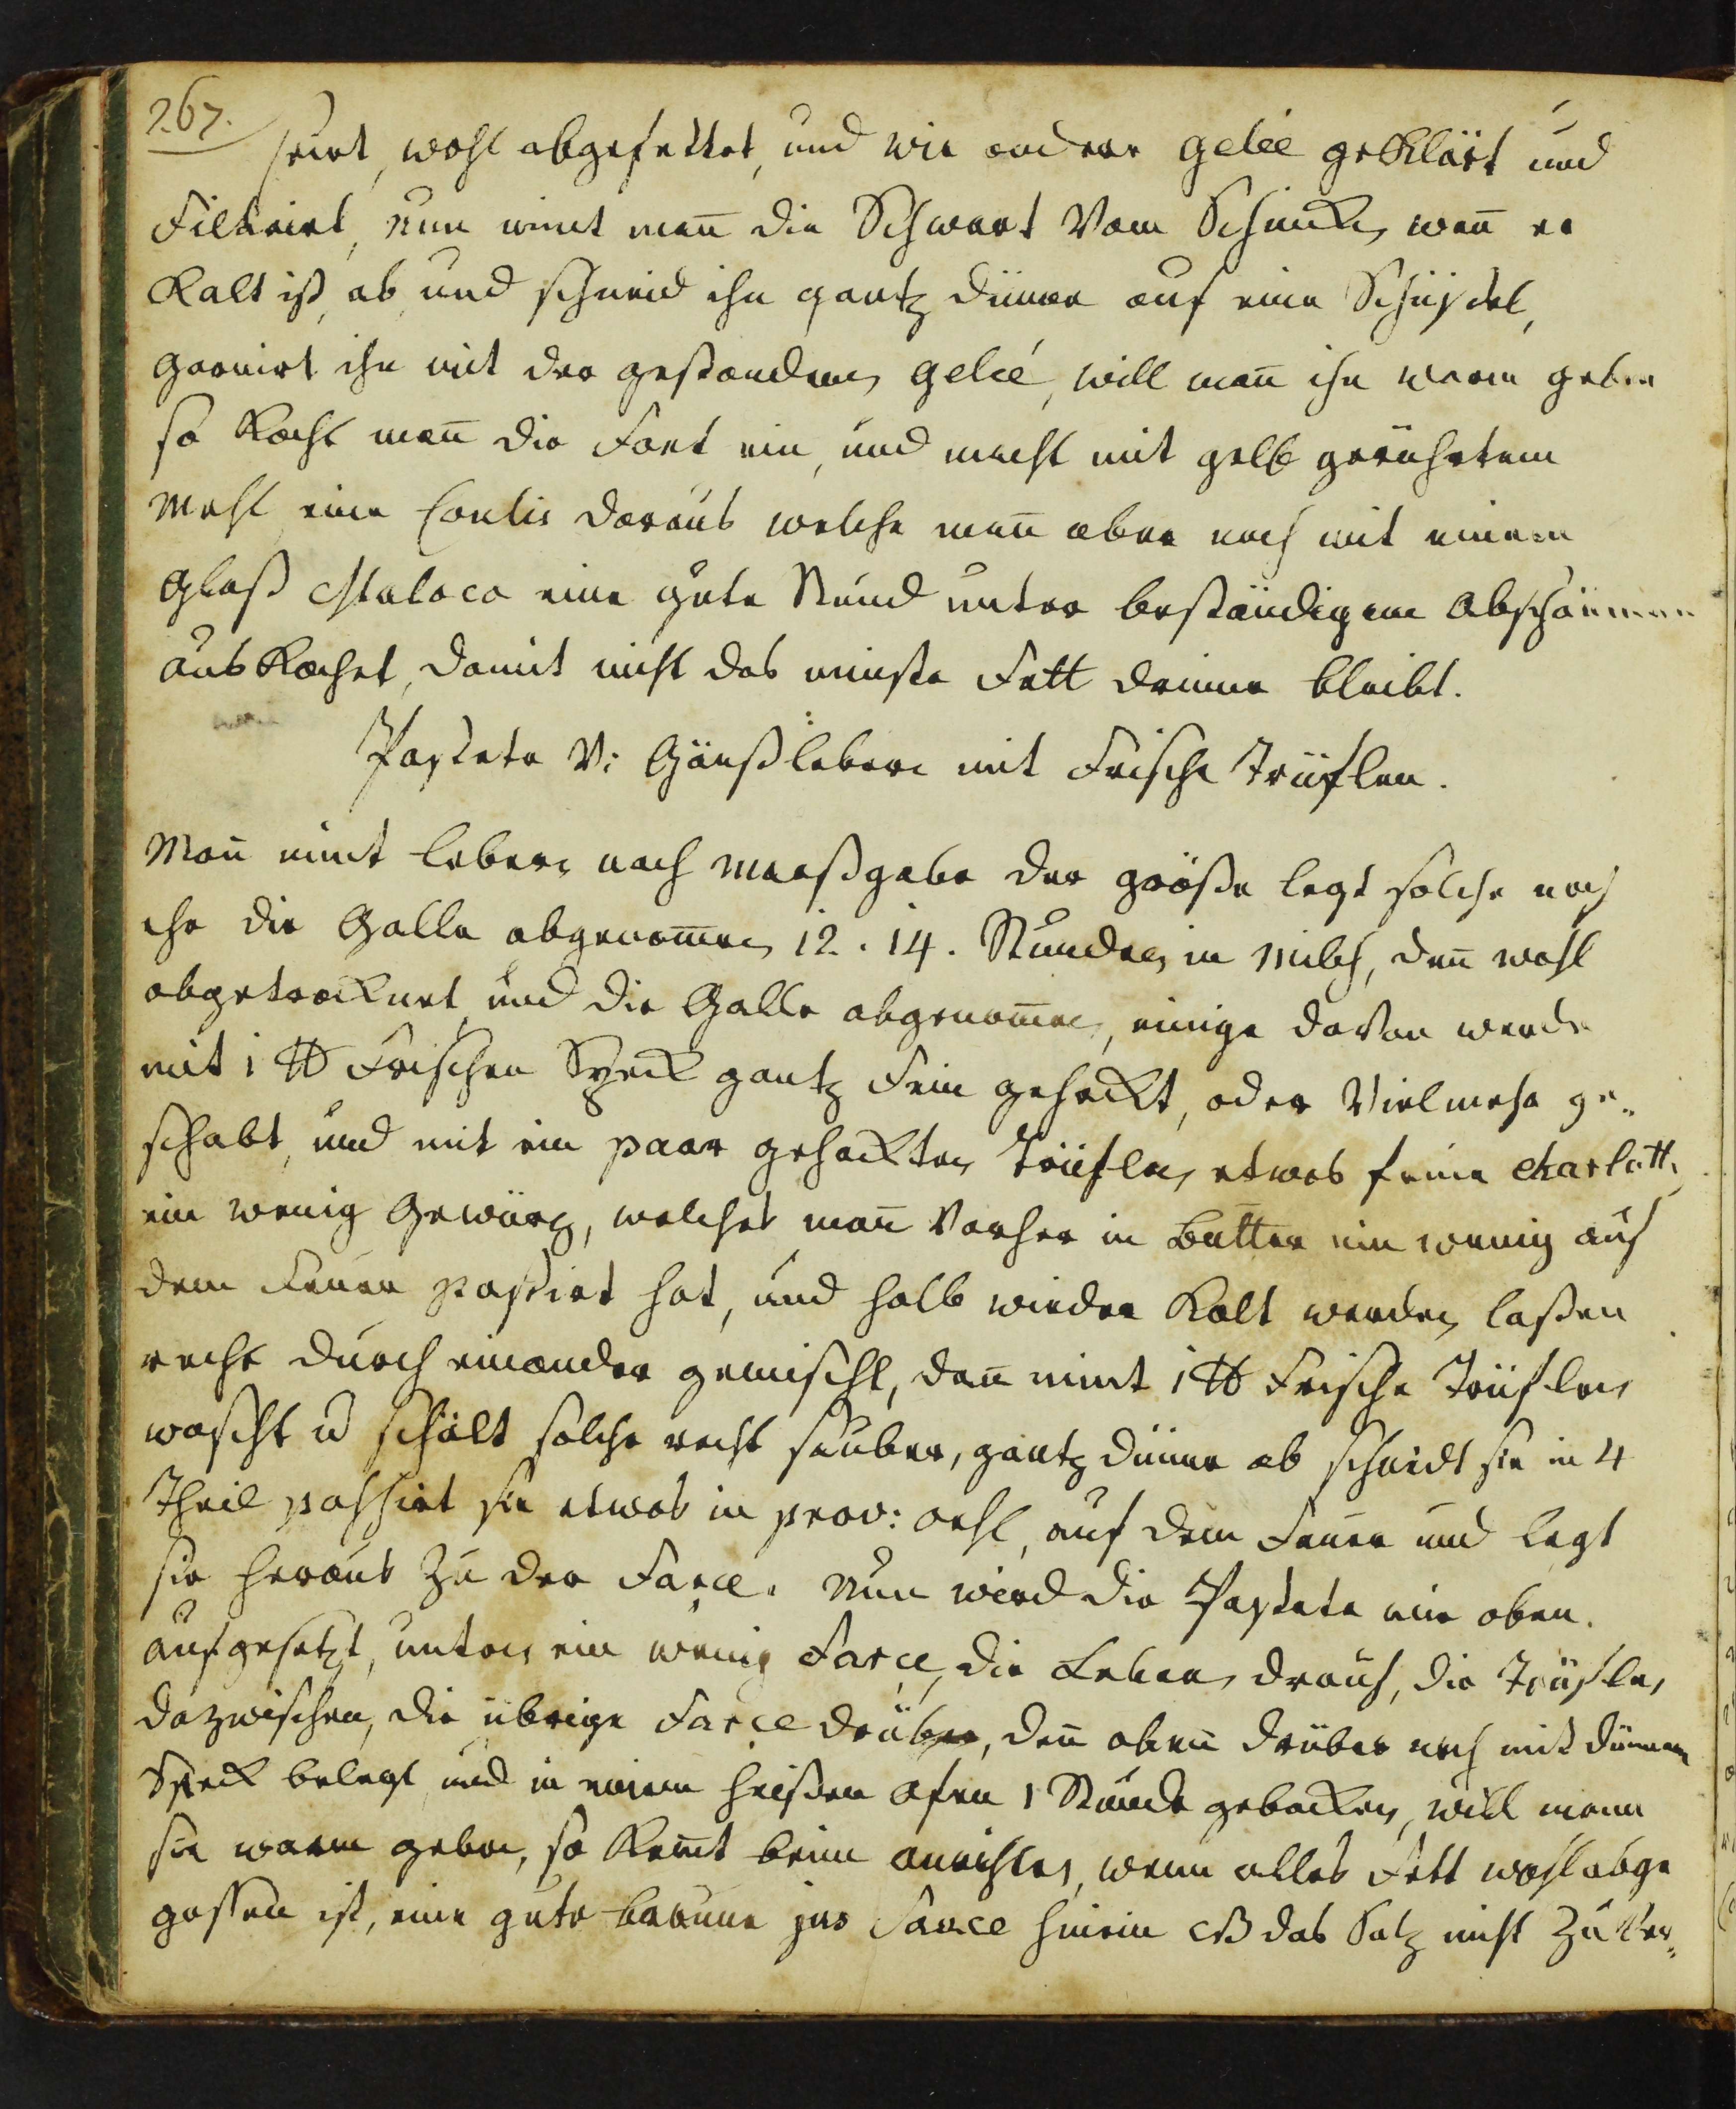 267.
seirt, wohl abgefettet, und wie anderer geleé geklärt und
Filtrirt, nun nimt man̄ die Schwart vom Schincken, wan̄ er
Kalt ist, ab, und schneid ihn gantz dünne auf eine Schüssel,
garnirt ihn mit der gestandenen geleé, will man̄ ihn warm geben
so kocht man̄ die Font ein, und macht mit gelb geröhstem
Mehl eine Coulis daraus welche man̄ aber noch mit einem
Glaß Malaca eine gute Stund unter beständigem Abschäumen
auskochet, damit nicht das minste Fett drinne bleibt.
Pastete V: Gänßlebern mit Frische Trüflen.
Man̄ nimt Lebern nach Maaßgabe der größe legt solche noch
ehe die Galle abgenom̄en 12. 14. Stunden in Milch, den̄ wohl
abgetrocknet und die Galle abgenom̄en, einige davon werde
mit 1 ℔ Frischen Speck gantz Fein gehackt, oder Vielmehr ge-
schabt, und mit ein paar gehackten Trüflen etwas feine charlotten
ein wenig Gewürz, welches man̄ vorher in Butter ein wenig auf
dem Feuer passirt hat, und halb wieder Kalt werden laßen
recht durch einander gemischt, dan̄ nimt 1 ℔ Frische Trüflen
wascht u schält solche recht sauber, gantz dünne ab schneidt sie in 4
Theil passirt sie etwas in prov: oehl, auf dem Feuer und legt
sie heraus zu der Farce. Nun wird die Pastete wie oben.
aufgesetzt, unten ein wenig Farce, die Lebern drauf, die Trüflen
dazwischen, die übrige Farce drüber, den̄ oben drüber noch mit dünnem
Speck belegt und in einem heißen Ofen 1 Stunde gebacken, will mann
sie warm geben, so komt beim anrichten, wenn alles Fett wohl abge
gossen ist, eine gute braune jus Sauce hinein das Saltz nicht zu Ver-